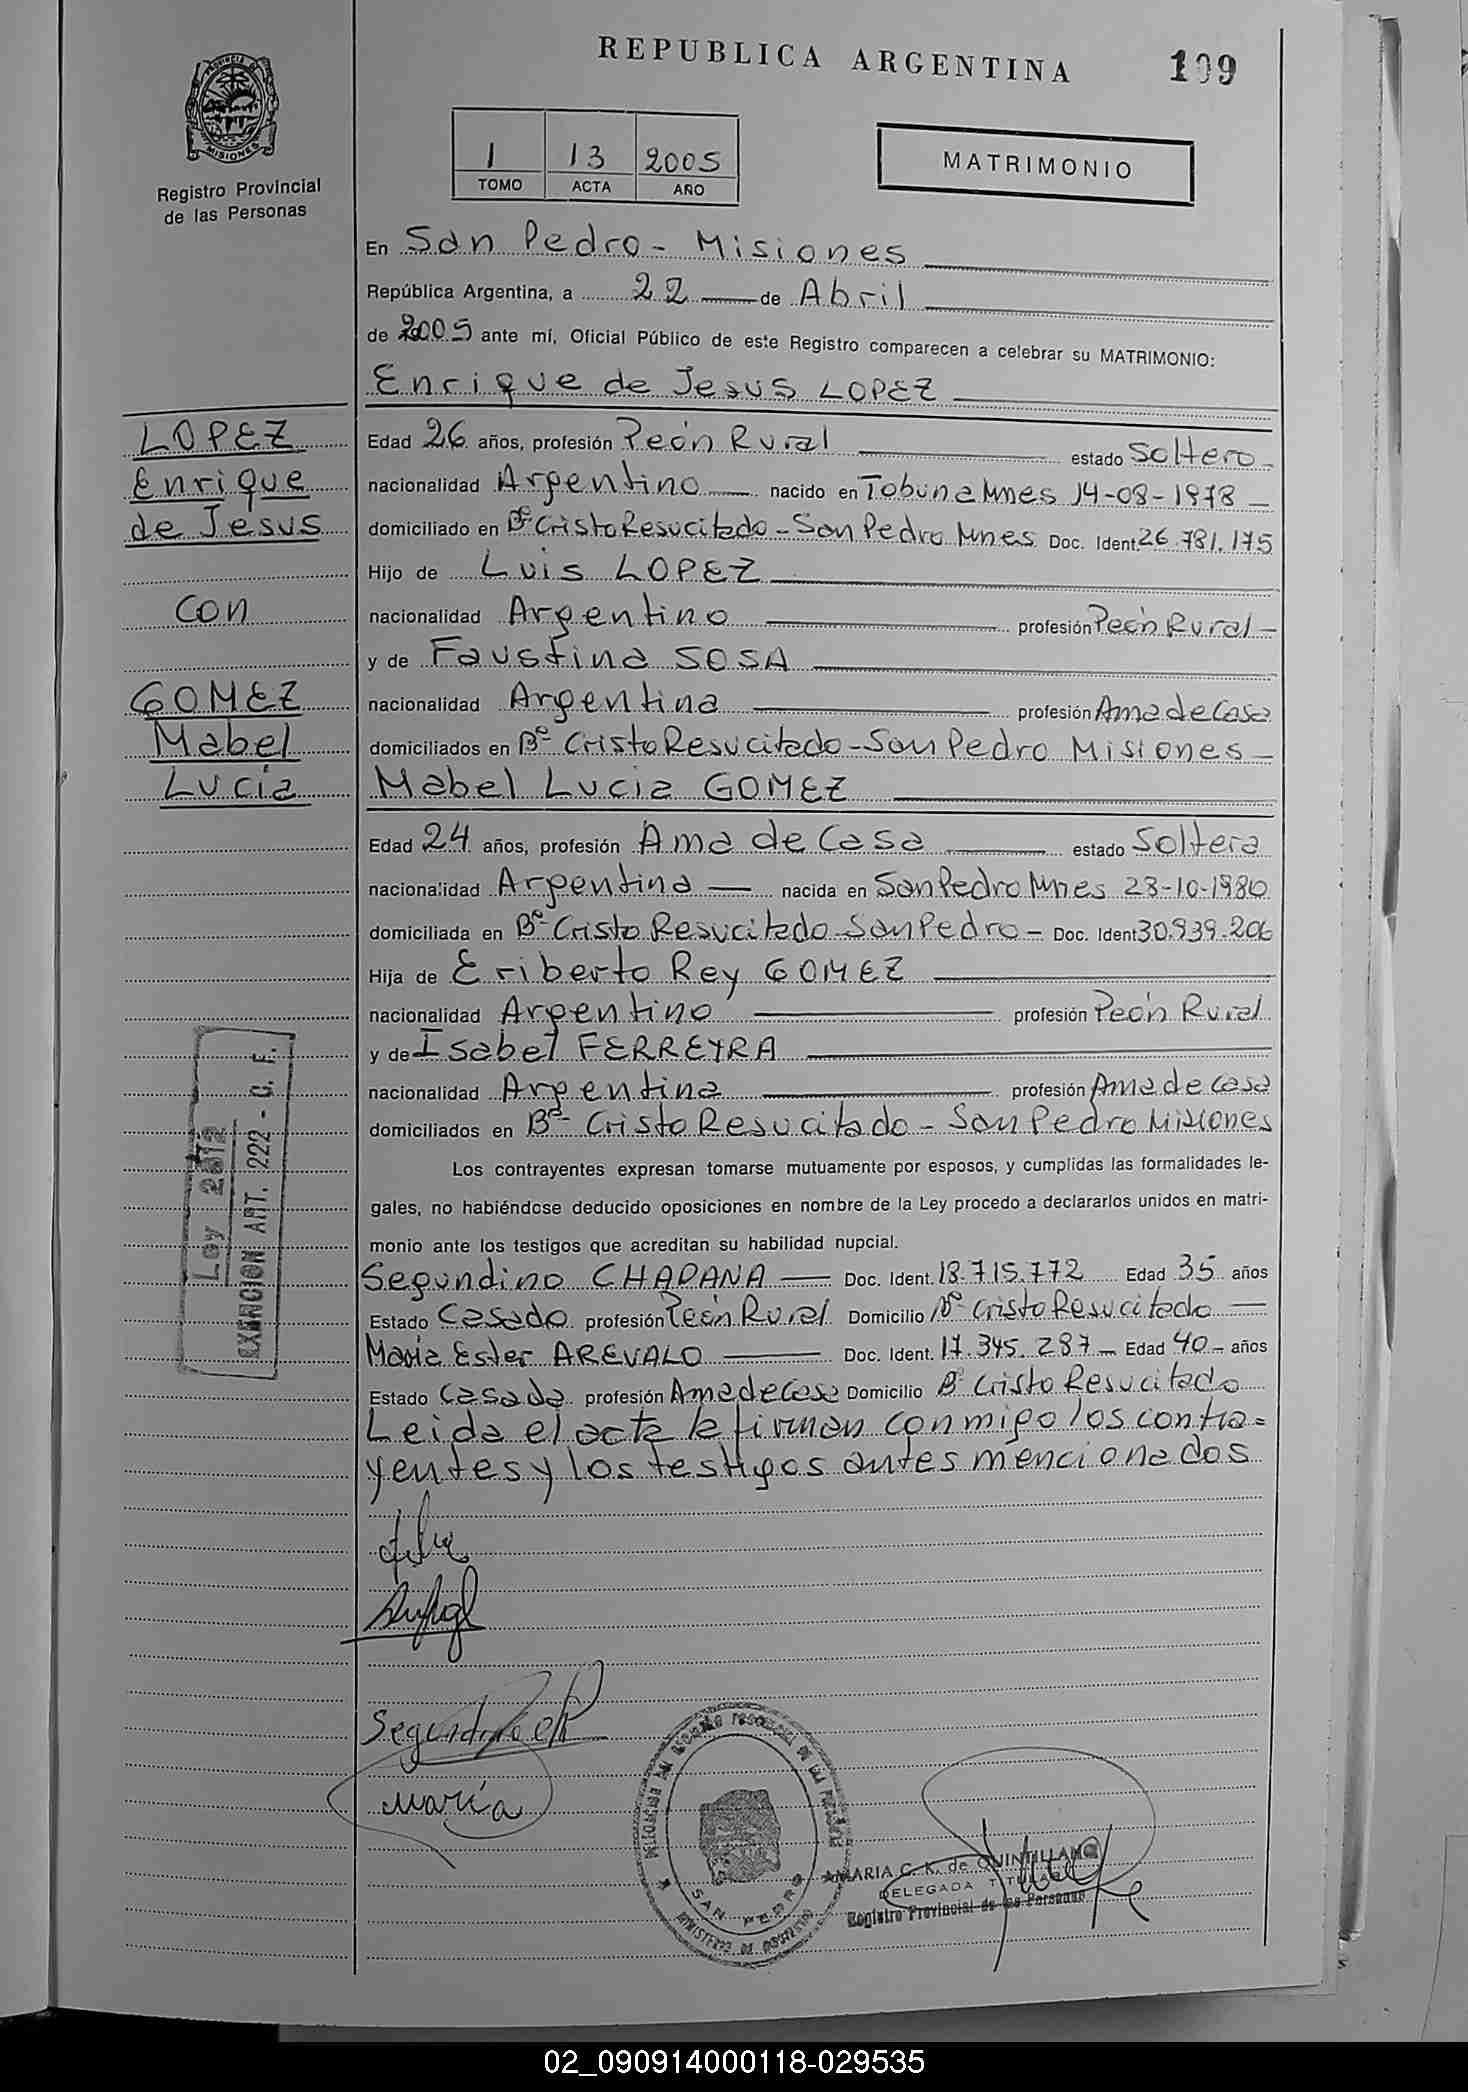 REPUBLICA ARGENTINA
199
PROVINCIA DE
MISIONES
Registro Provincial
de las Personas
1 13 2005
TOMO ACTA AÑO
MATRIMONIO
En San Pedro - Misiones
República Argentina, a 22 de Abril
de 2005 ante mí, Oficial Público de este Registro comparecen a celebrar su MATRIMONIO:
Enrique de Jesus LOPEZ
LOPEZ
Enrique
de Jesus
con
GOMEZ
Mabel
Lucia
Edad 26 años, profesión Peón Rural estado Soltero
nacionalidad Argentino nacido en Tobuna Mnes 14-08-1978
domiciliado en Bº Cristo Resucitado - San Pedro Mnes Doc. Ident. 26.781.175
Hijo de Luis LOPEZ
nacionalidad Argentino profesión Peón Rural
y de Faustina SOSA
nacionalidad Argentina profesión Ama de Casa
domiciliados en Bº Cristo Resucitado - San Pedro Misiones
Mabel Lucia GOMEZ
Edad 24 años, profesión Ama de Casa estado Soltera
nacionalidad Argentina nacida en San Pedro Mnes 23-10-1980
domiciliada en Bº Cristo Resucitado San Pedro - Doc. Ident 30.939.206
Hija de Eriberto Rey GOMEZ
nacionalidad Argentino profesión Peón Rural
y de Isabel FERREYRA
nacionalidad Argentina profesión Ama de casa
domiciliados en Bº Cristo Resucitado - San Pedro Misiones
Ley 2812
EXENCION ART. 222 - C. F.
Los contrayentes expresan tomarse mutuamente por esposos, y cumplidas las formalidades le-
gales, no habiéndose deducido oposiciones en nombre de la Ley procedo a declararlos unidos en matri-
monio ante los testigos que acreditan su habilidad nupcial.
Segundino CHAPANA Doc. Ident. 18.715.772 Edad 35 años
Estado Casado profesión Peón Rural Domicilio Bº Cristo Resucitado
Maria Ester AREVALO Doc. Ident. 17.345.287 Edad 40 años
Estado Casada profesión Ama de Casa Domicilio Bº Cristo Resucitado
Leida el acta la firman conmigo los contra=
yentes y los testigos antes mencionados
Segundino
Maria
SAN PEDRO
MARIA C. K. de QUINTILLANO
DELEGADA TITULAR
Registro Provincial de las Personas
02_090914000118-029535